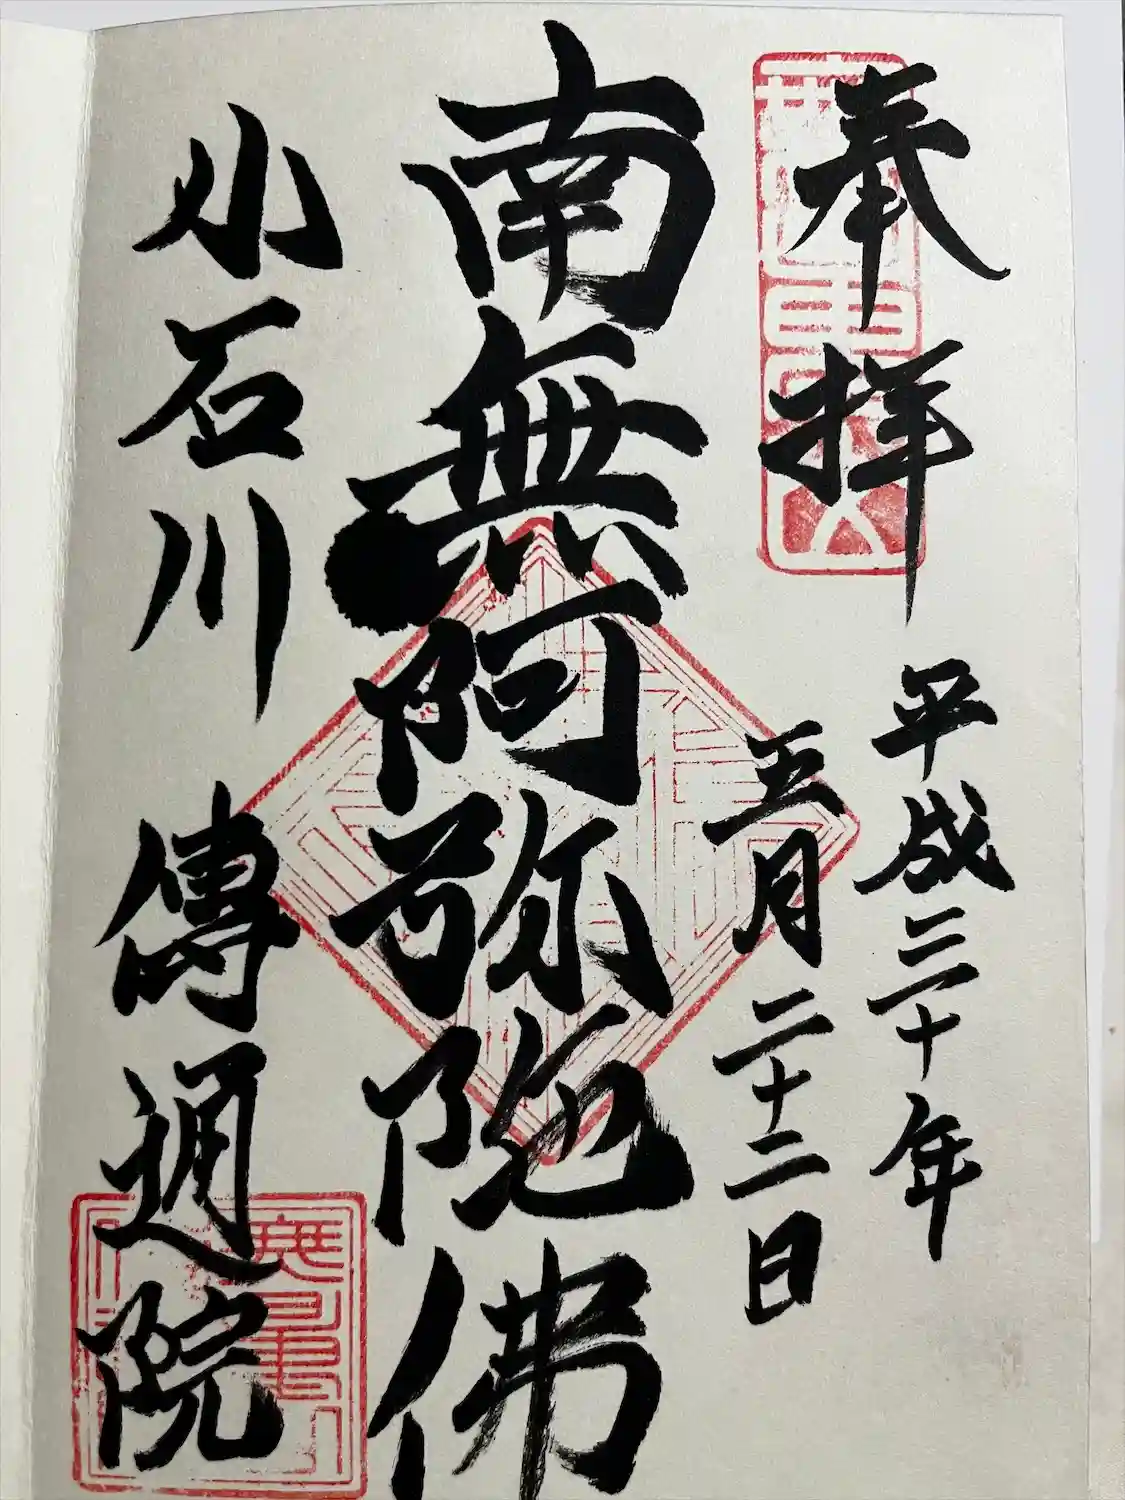 奉拝
平成三十年
五月二十二日
南無阿弥陀佛
小石川
傳通院